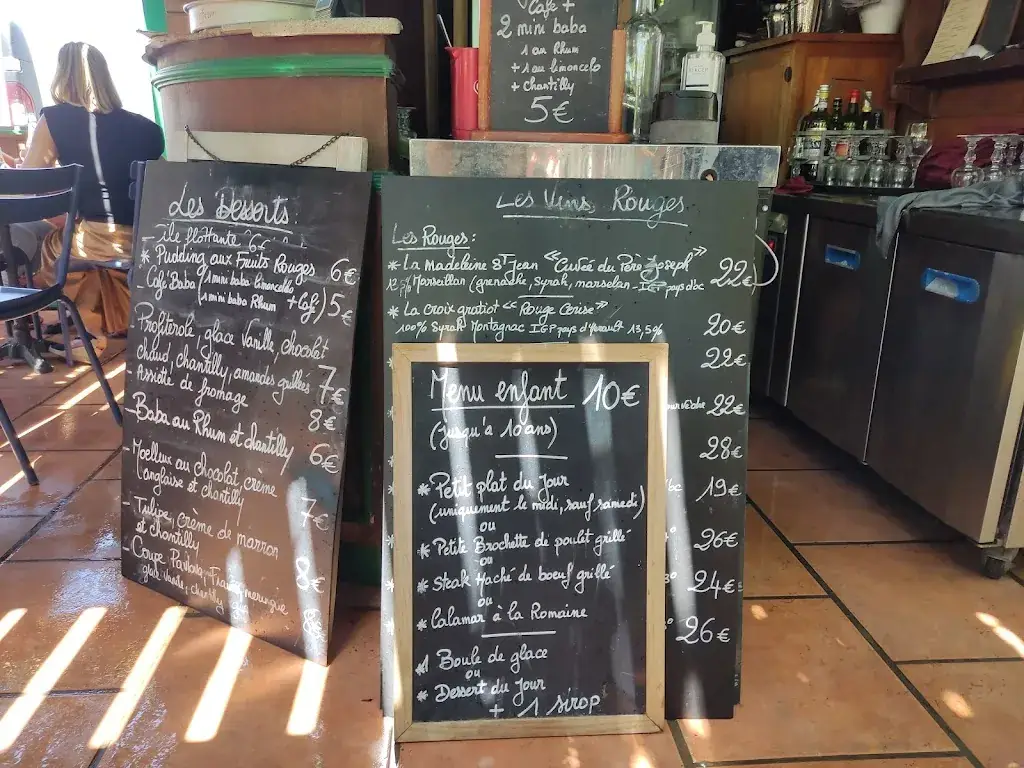 Café +
2 mini baba
1 au Rhum
+ 1 au limoncelo
+ chantilly
5€
Les Desserts
île flottante 6€
* Pudding aux Fruits Rouges 6€
- Café Baba (1 mini baba limoncelo
1 mini baba Rhum + Café) 5€
- Profiterole, glace Vanille, chocolat
chaud, chantilly, amandes grillées 7€
- Assiette de fromage 8€
- Baba au Rhum et chantilly 6€
- Moelleux au chocolat, crème
anglaise et chantilly 7€
- Tulipe, crème de marron
et chantilly 8€
- Coupe Pavlova, meringue
glace vanille, chantilly 8€
Les Vins Rouges
Les Rouges :
* La Madeleine St Jean "Cuvée du Père Joseph"
Marseillan (grenache, Syrah, marselan - IGP pays d'oc 22€
* La croix gratiot "Rouge Cerise"
100% Syrah Montagnac IGP pays d'Herault 13,5% 20€
22€
22€
28€
19€
26€
24€
26€
Menu enfant 10€
(jusqu'a 10 ans)
* Petit plat du Jour
(uniquement le midi, sauf samedi)
ou
* Petite Brochette de poulet grillé
ou
* Steak Haché de boeuf grillé
ou
* Calamar à la Romaine
*1 Boule de glace
ou
* Dessert du Jour
+ 1 sirop